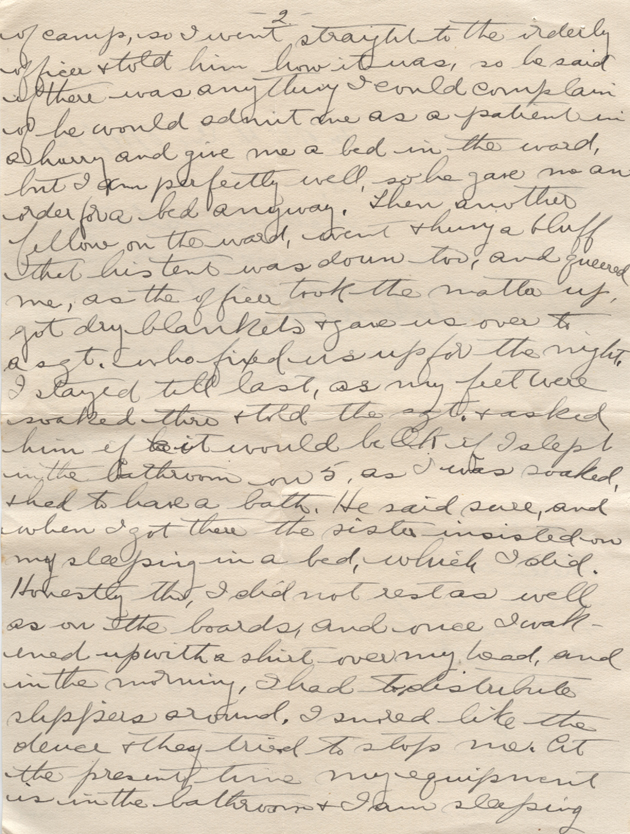 -2-
of camp, so I went straight to the orderly
officer & told him how it was, so he said
if there was anything I could complain
of he would admit me as a patient in
a hurry and give me a bed in the ward,
but I am perfectly well, so he gave me an
order for a bed anyway. Then another
fellow, on the ward, went & hung a bluff
that his tent was down too, and queered
me, as the officer took the matter up,
got dry blankets & gave us over to
a sgt. who fixed us up for the night.
I stayed till last, as my feet were
soaked thro & told the sgt. & asked
him if it would be O.K. if I slept
in the bathroom on 5, as I was soaked,
& had to have a bath. He said sure, and
when I got there the sister insisted on
my sleeping in a bed, which I did.
Honestly tho, I did not rest as well
as on the boards, and once I wak-
ened up with a shirt over my head, and
in the morning, I had to distribute
slippers around. I snored like the
deuce & they tried to stop me. At
the present time my equipment
is in the bathroom & I am sleeping